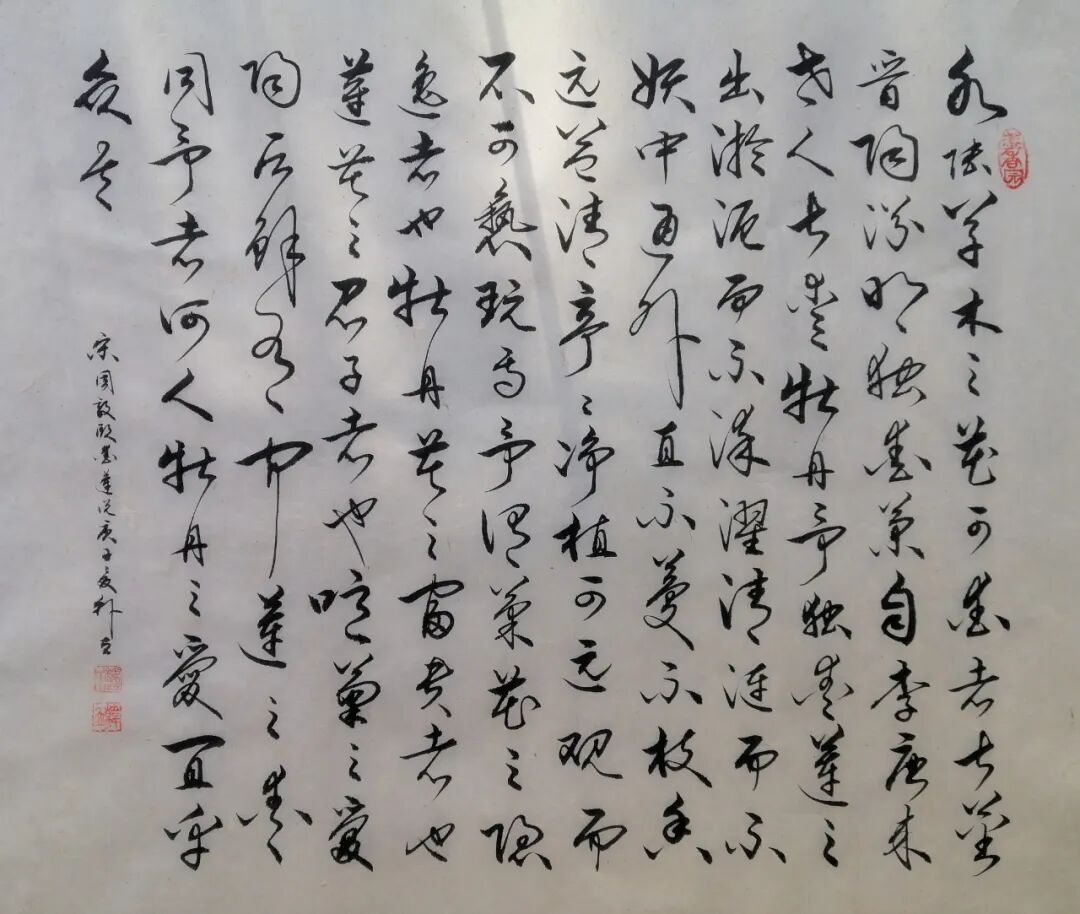 水陸草木之花可愛者甚蕃
晋陶淵明独愛菊自李唐来
世人甚愛牡丹予独愛蓮之
出淤泥而不染濯清涟而不
妖中通外直不蔓不枝香
远益清亭〻净植可远观而
不可褻玩焉予謂菊花之隐
逸者也牡丹花之富貴者也
蓮花之君子者也噫菊之愛
陶后鮮有闻蓮之愛
同予者何人牡丹之愛宜乎
众矣
宋周敦颐愛蓮说庚子夏